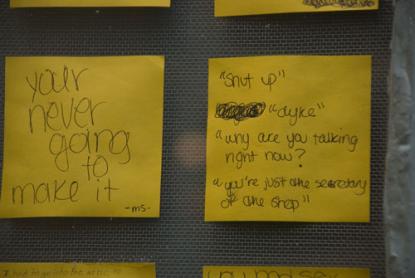 your
never
going
to
make it
-ms-
"Shut up"
"dyke"
"why are you talking
right now?
"you're just the secretary
of the shop"